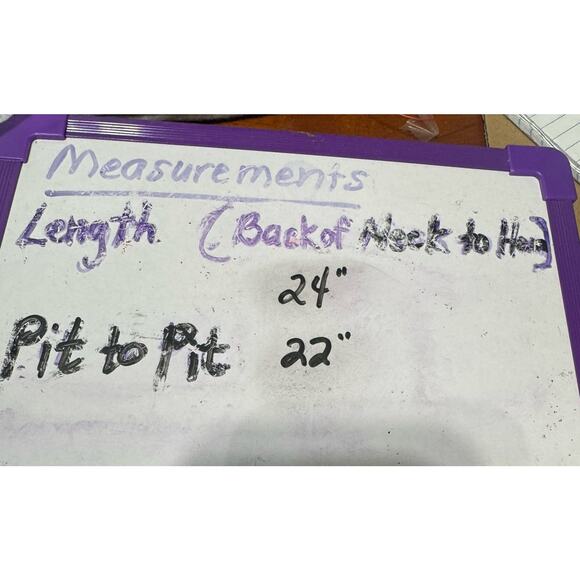 Measurements
Length (Back of Neck to Hem)
24"
Pit to Pit 22"